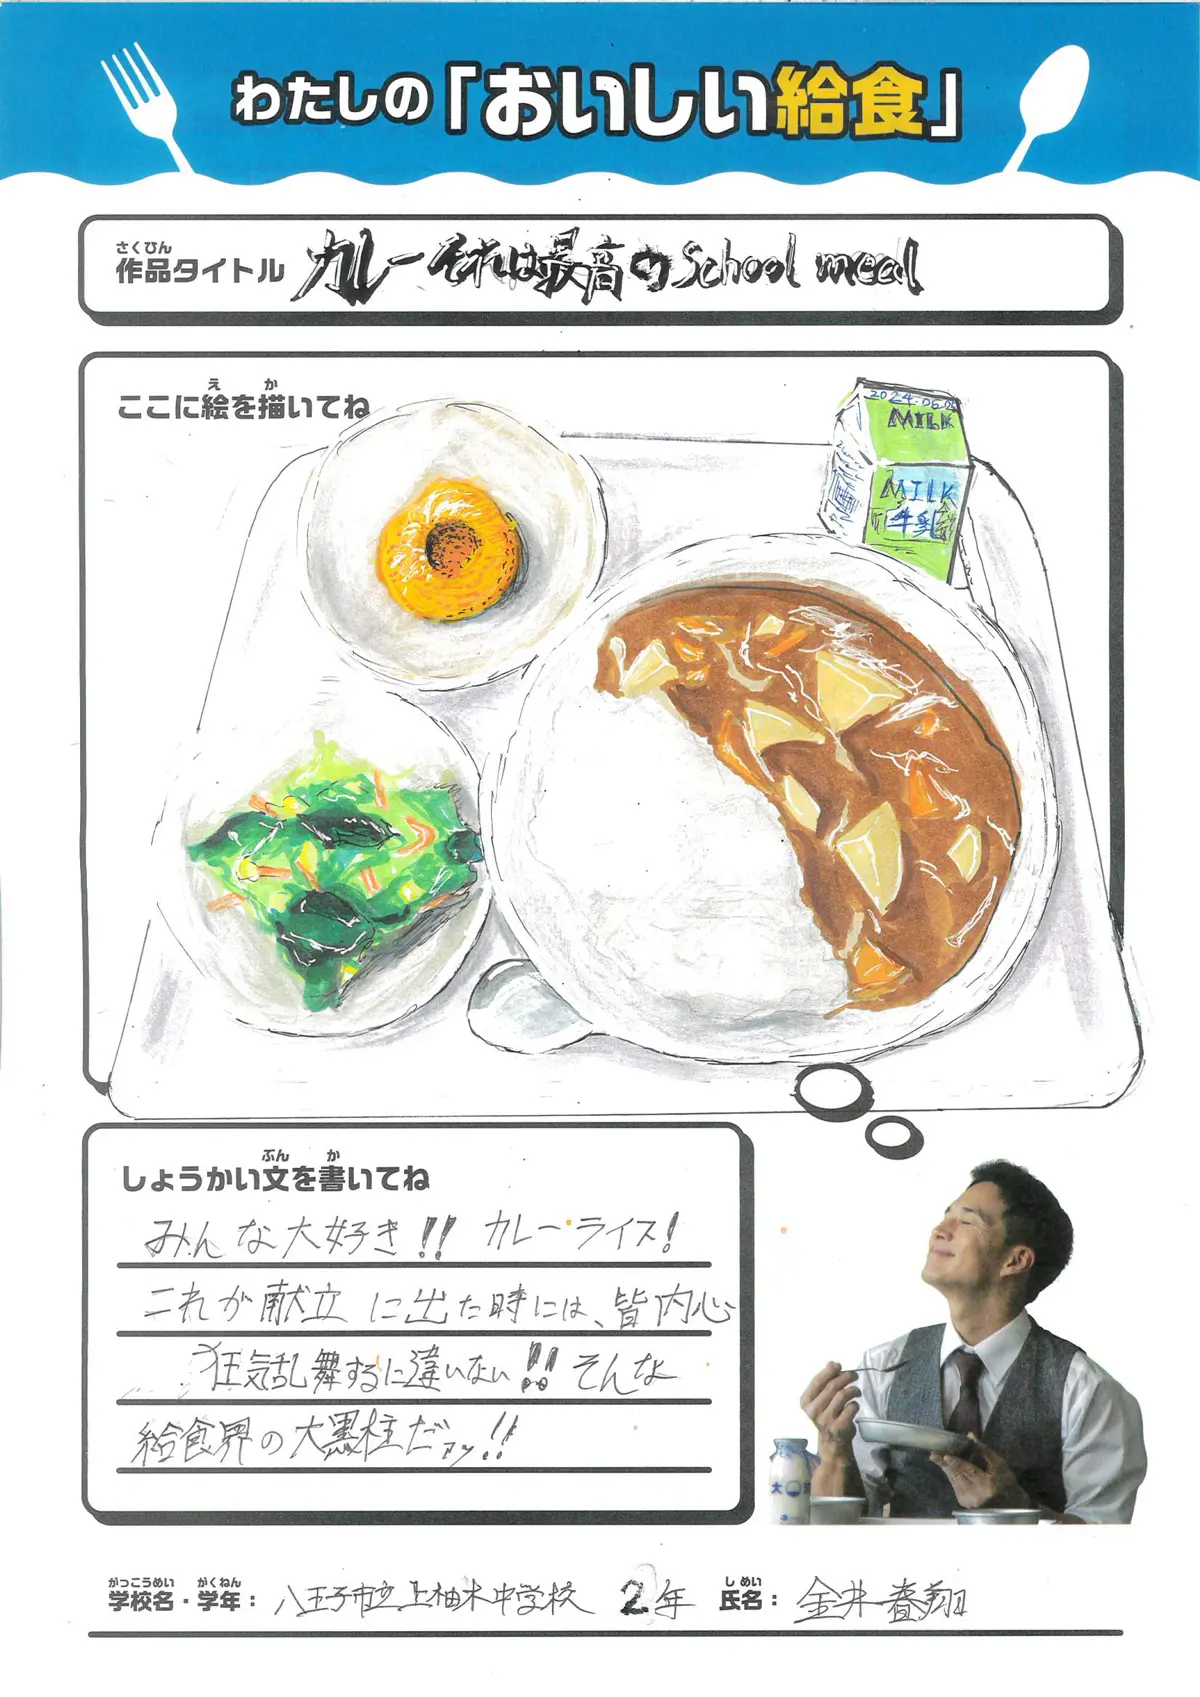 わたしの「おいしい給食」
さくひん
作品タイトル カレーそれは最高のSchool meal
え か
ここに絵を描いてね
2024.06.
MILK
MILK
牛乳
ぶん か
しょうかい文を書いてね
みんな大好き!! カレーライス!
これが献立に出た時には、皆内心
狂気乱舞するに違いない!! そんな
給食界の大黒柱だァッ!!
大
がっこうめい がくねん しめい
学校名・学年： 八王子市立上柚木中学校 2年 氏名： 金井春翔